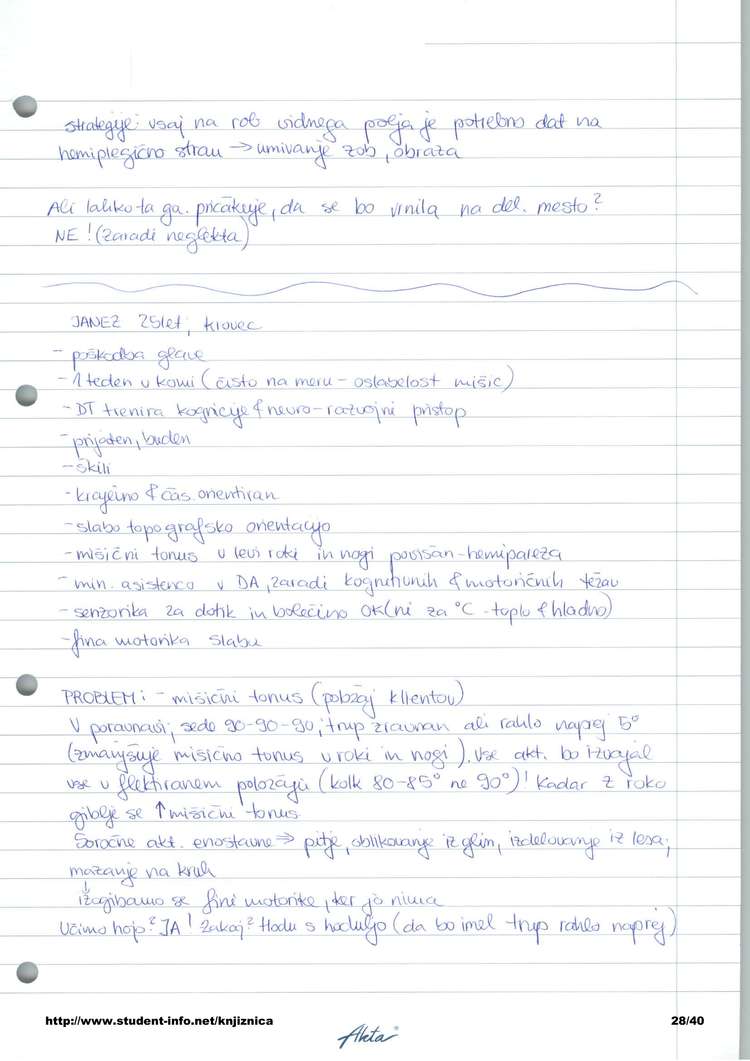 strategije: vsaj na rob vidnega polja je potrebno dat na
hemiplegično stran → umivanje zob, obraza
Ali lahko ta ga. pričakuje, da se bo vrnila na del. mesto?
NE! (zaradi neglekta)
JANEZ 25let, krovec
- poškodba glave
- 1 teden v komi (čisto na meru - oslabelost mišic)
- DT trenira kognicije & nevro-razvojni pristop
- prijaten, buden
- škili
- krajevno & čas. orientiran
- slabo topografsko orientacijo
- mišični tonus v levi roki in nogi povišan - hemipareza
- min. asistenco v DA, zaradi kognitivnih & motoričnih težav
- senzorika za dotik in bolečino OK (ni za °C - toplo & hladno)
- fina motorika slaba
PROBLEM: - mišični tonus (položaj klientov)
V poravnavi; sede 90-90-90, trup zravnan ali rahlo naprej 5°
(zmanjšuje mišično tonus v roki in nogi). Vse akt. bo izvajal
vse v flektiranem položaju (kolk 80-85° ne 90°)! Kadar z roko
giblje se ↑ mišični tonus.
Soročne akt. enostavne ⇒ pitje, oblikovanje iz glin, izdelovanje iz lesa,
mazanje na kruh
↓
izogibamo se fini motorike, ker jo nima
Učimo hojo? JA! Zakaj? Hodu s hoduljo (da bo imel trup rahlo naprej)
http://www.student-info.net/knjiznica
28/40
Akta